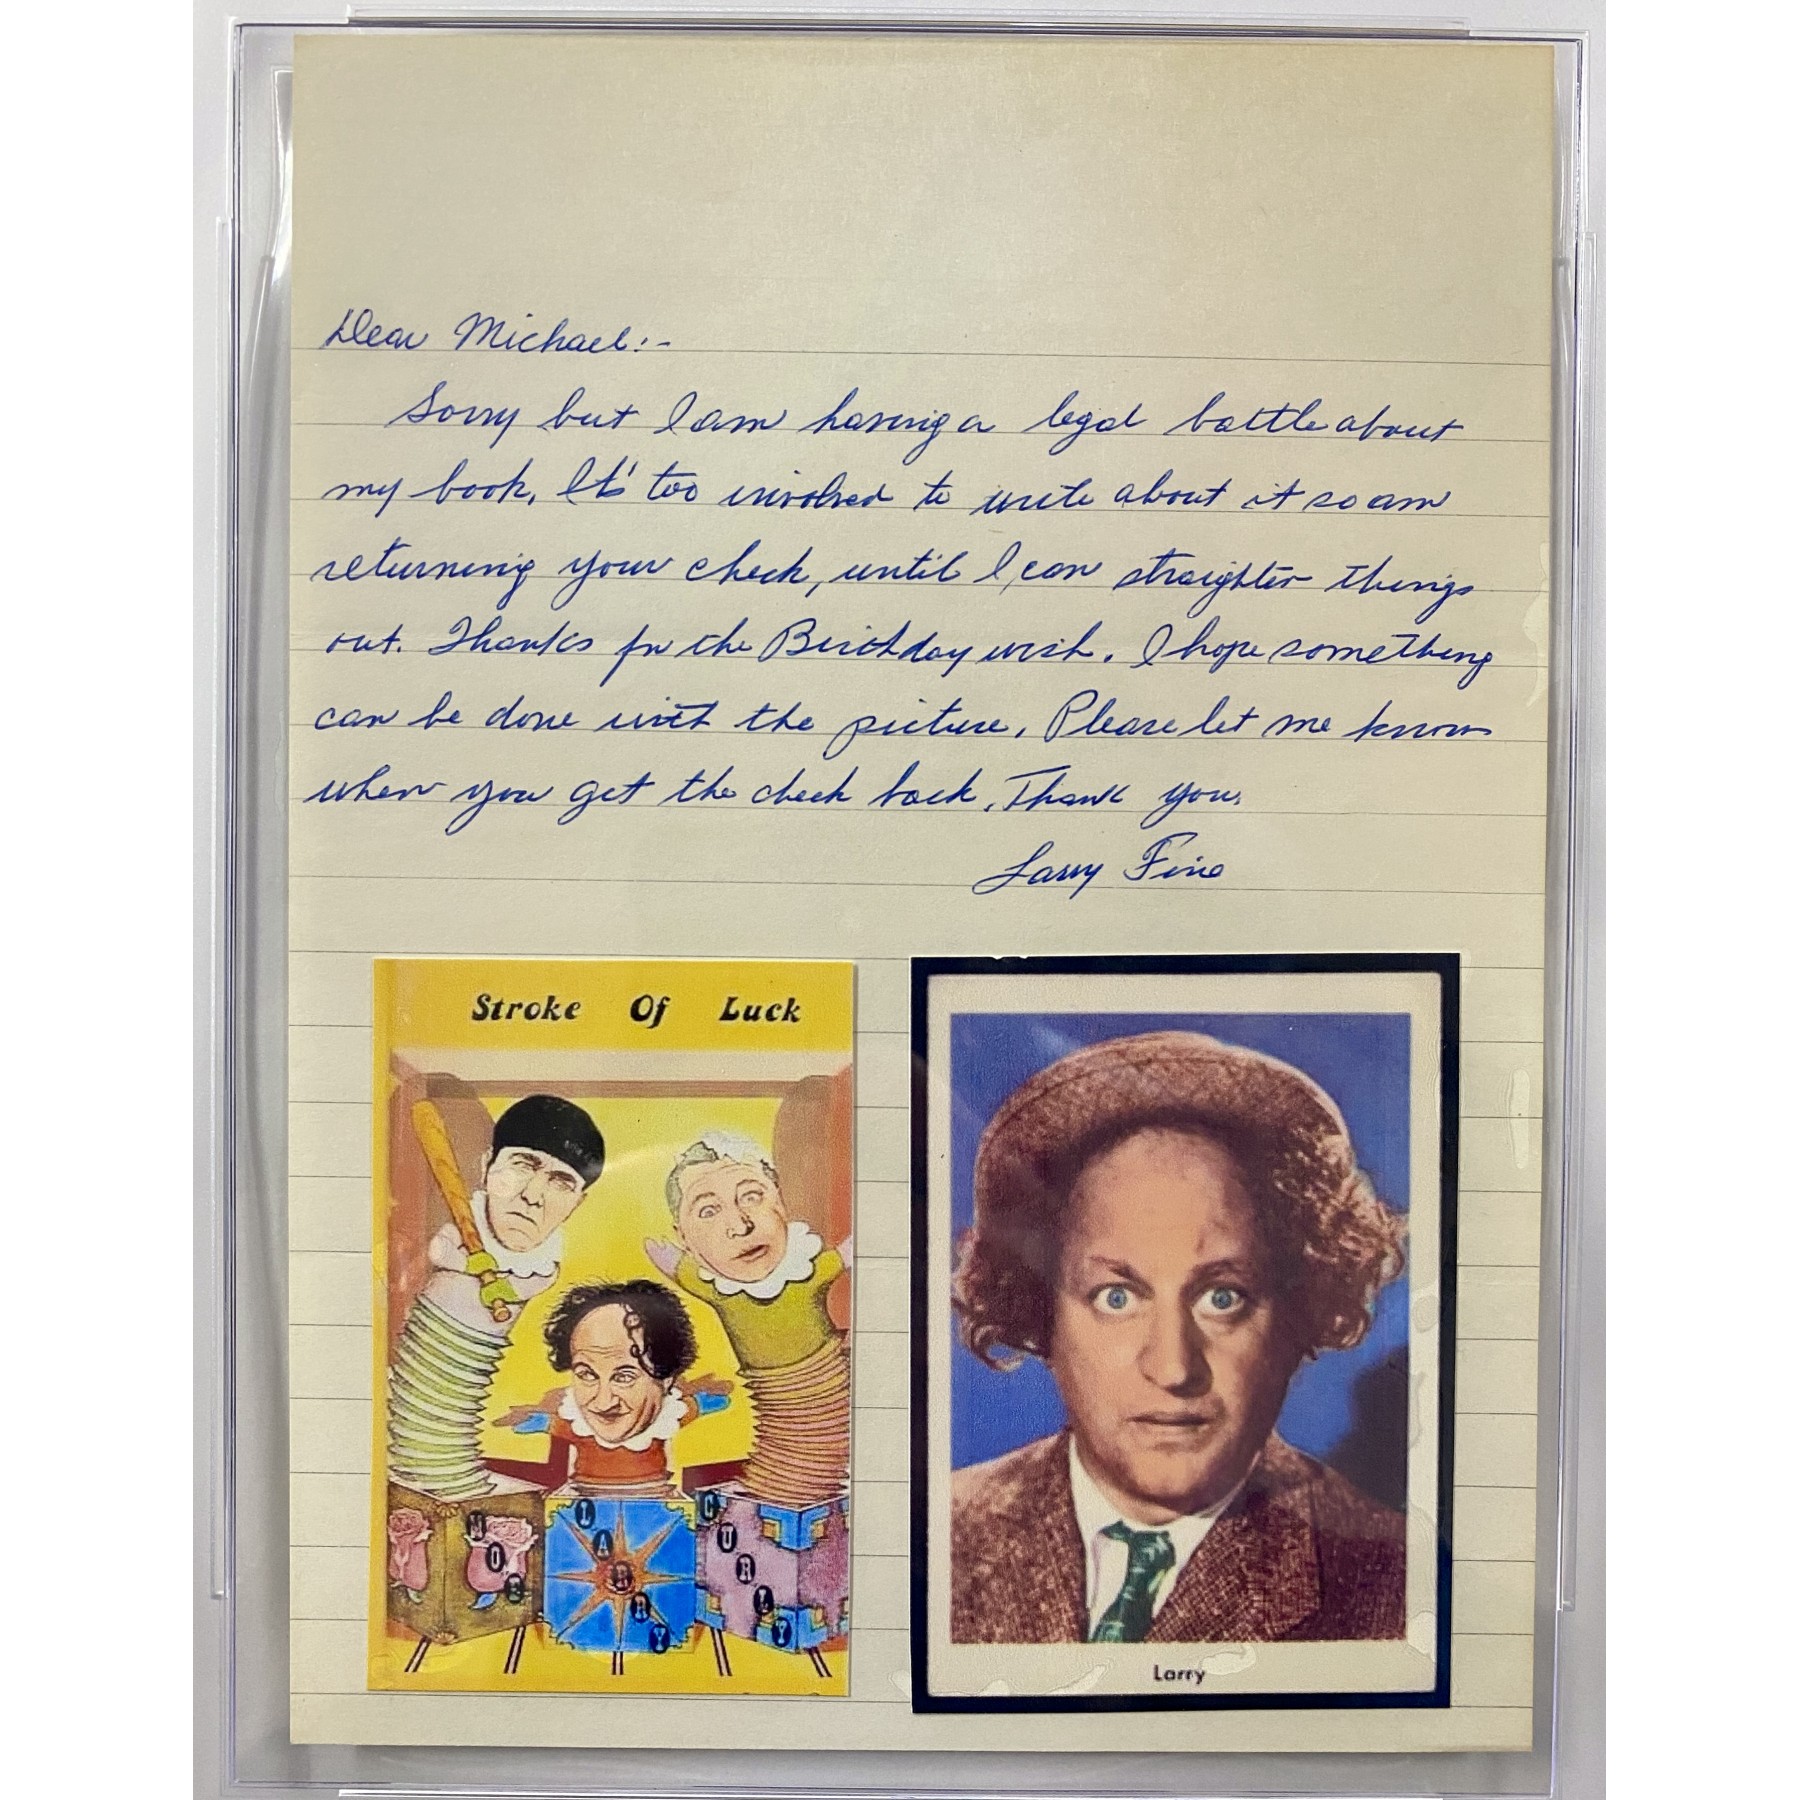 Dear Michael:-
Sorry but I am having a legal battle about
my book. It's too involved to write about it so am
returning your check, until I can straighten things
out. Thanks for the Birthday wish. I hope something
can be done with the picture. Please let me know
when you get the check back. Thank you.
Larry Fine
Stroke Of Luck
MOE
LARRY
CURLY
Larry